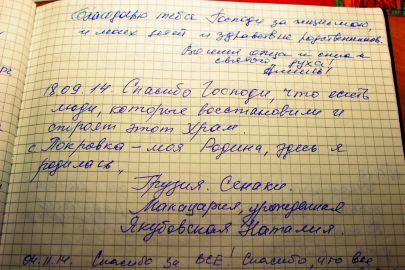 Благодарю тебя Господи за
и моих детей и здравствие родственников.
Во имя отца и сына и
святого духа!
Аминь!
18.09.14. Спасибо Господи, что есть
люди, которые восстановили и
строят этот Храм.
с. Покровка – моя Родина, здесь я
родилась,
Грузия. Сенаки.
Макацария, урожденная
Якубовская Наталия.
04.11.14. Спасибо за ВСЁ! Спасибо, что все